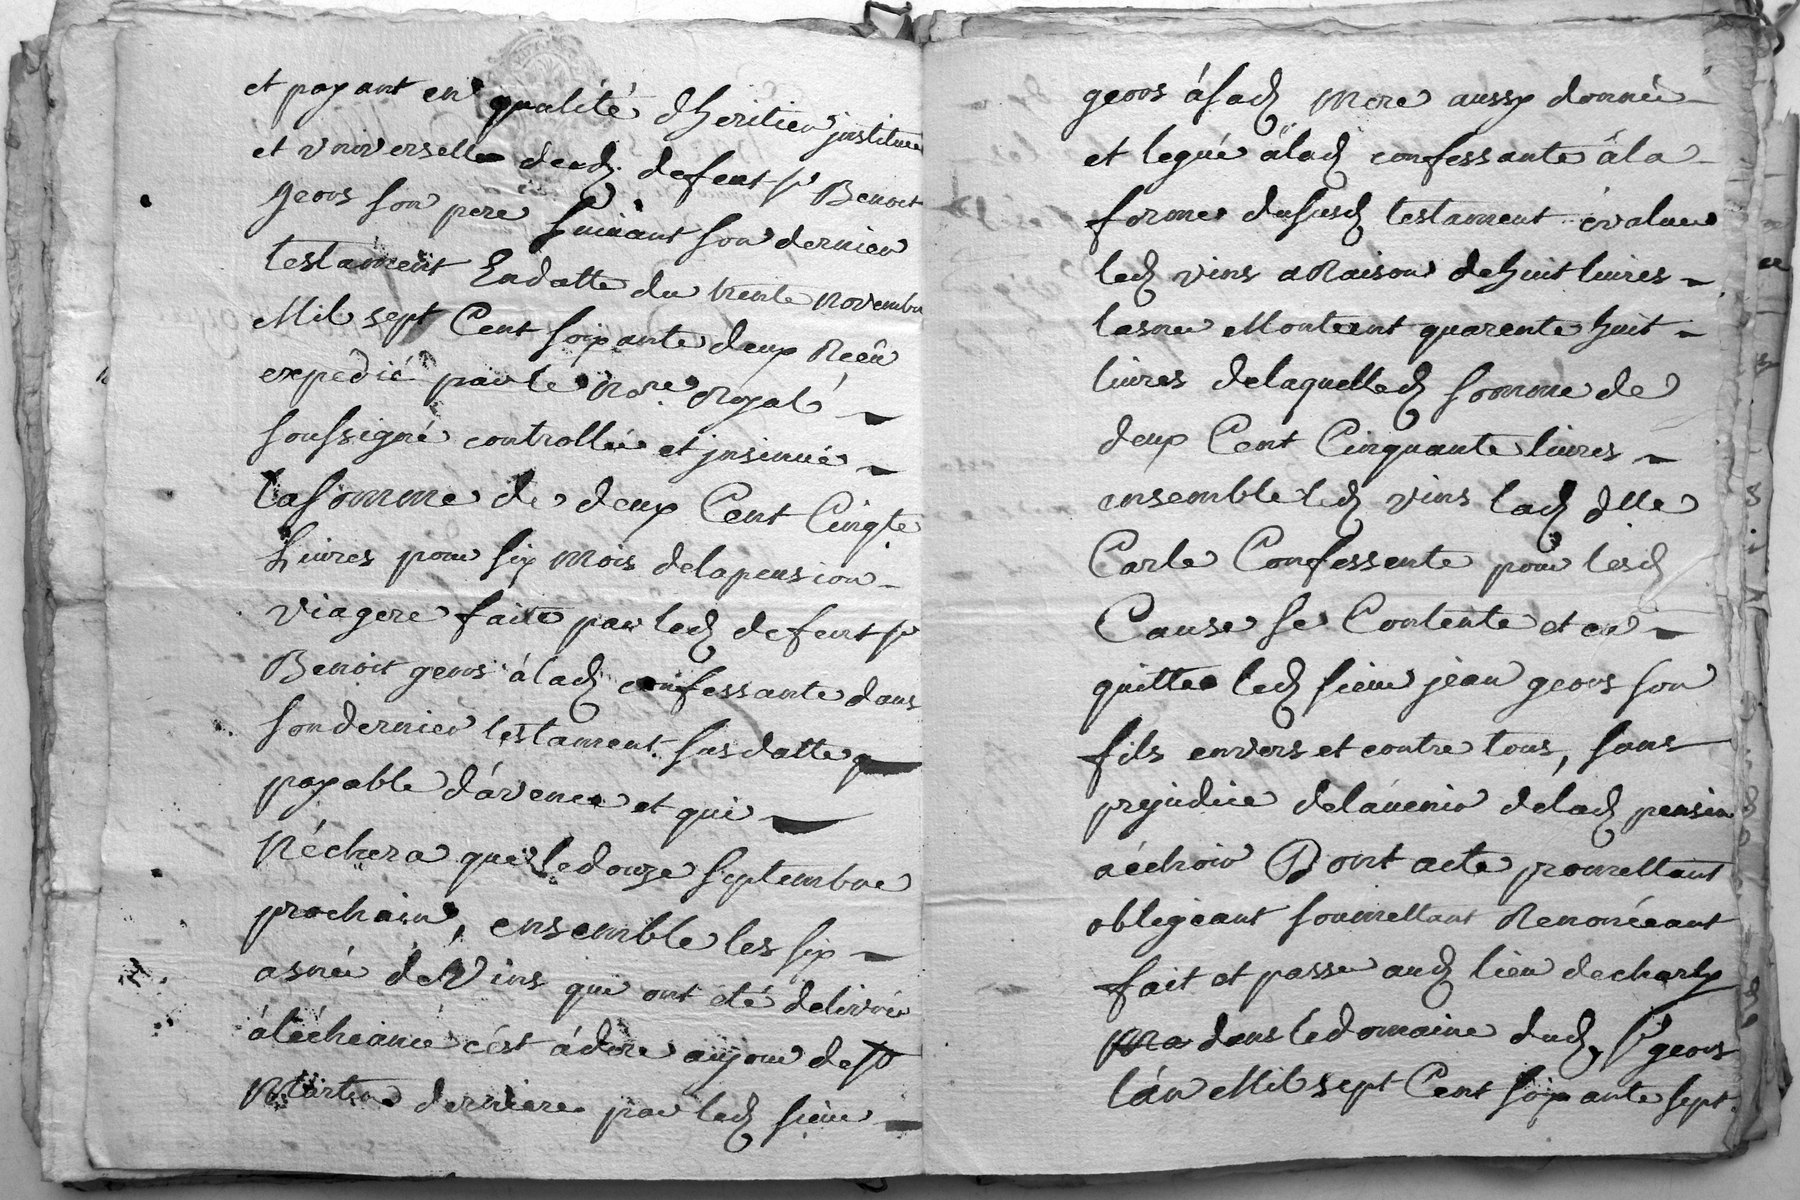 et payant en qualité d'heritier jnstitué
et vniverselle dud. defent sr Benoit
geors son pere suivant son dernier
testament Endatte du trente novembre
Mil sept Cent soixante deux Receu
expedié par le nore. Royal
soussigné controllée et jnsinué
la somme de deux Cent Cinqte
Livres pour six mois delapension
viagere faite par led defent sr
Benoit geors á lad confessante dans
son dernier testament susdatte
payable d'avence et qui
N'échera que ledouze septembre
prochain, ensemble les six
asnée de Vins qui ont eté delivrée
áléchéance c'est ádire aujour de st
Martin derniere par led sieur
geors ásad mere aussy donnée
et legué álad confessante á la
forme dususd testament évalue
led vins a Raison de huit livres
lasnee Montent quarente huit
livres delaquelled somme de
deux Cent Cinquante livres
ensemble led vins lad dlle
Carle Confessente pour lesd
Cause se Contente et en
quitte led sieur jean geors son
fils envers et contre tous, sans
prejudice delávenir delad pension
aéchoir Dont acte promettant
obligeant soumettant Renonceant
fait et passe aud lieu decharly
dans ledomaine dud. sr geors
l'án Mil sept Cent soixante sept